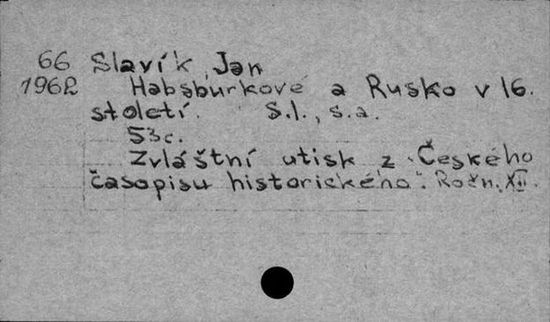 66 Slavík, Jan
1962 Habsburkové a Rusko v 16.
století. S.l., s.a.
53c.
Zvláštní utisk z "Českého
časopisu historického". Ročn. XII.